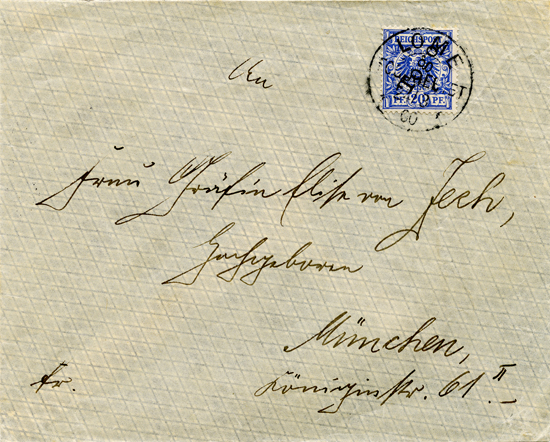 REICHSPOST
LOME
TOGOGEBIET
00
PF 20 PF
An
Frau Gräfin Elise von Zech,
Hochgeboren
München,
fr.
Königinstr. 61 II